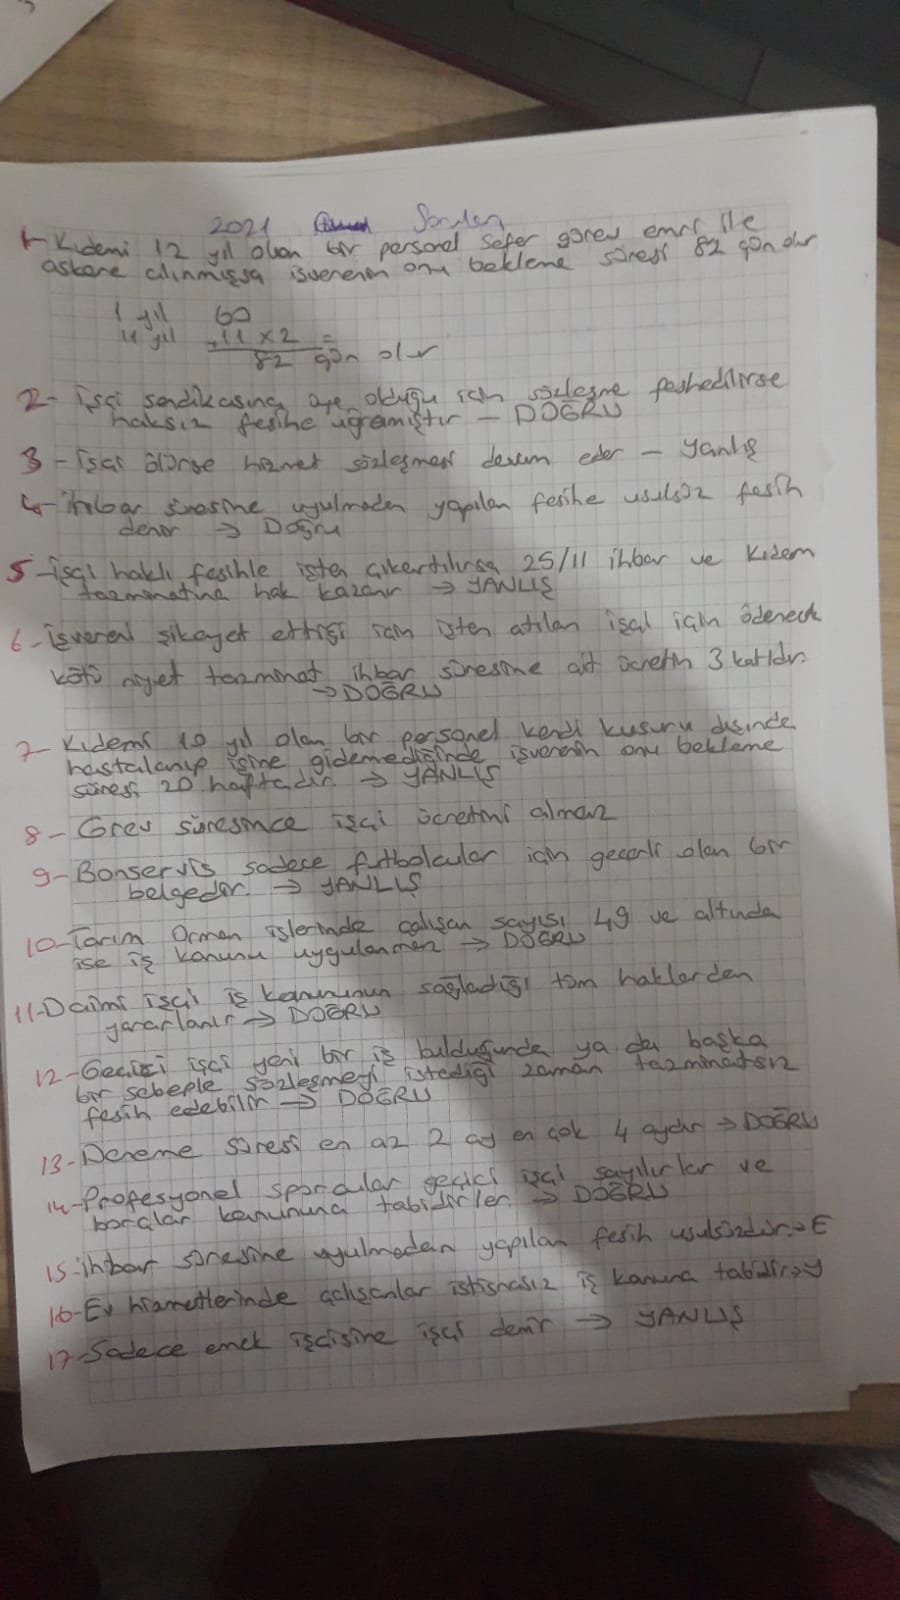 2021 Soruları
1- Kıdemi 12 yıl olan bir personel sefer görev emri ile
askere alınmışsa işverenin onu bekleme süresi 82 gündür
1 yıl 60
11 yıl 11 x 2 =
82 gün olur
2- İşçi sendikasına üye olduğu için sözleşme feshedilirse
haksız fesihe uğramıştır - DOĞRU
3 - İşçi ölürse hizmet sözleşmesi devam eder - Yanlış
4- İhbar süresine uyulmadan yapılan fesihe usulsüz fesih
denir → Doğru
5 - İşçi haklı fesihle işten çıkartılırsa 25/II ihbar ve kıdem
tazminatına hak kazanır → YANLIŞ
6 - İşvereni şikayet ettiği için işten atılan işçi için ödenecek
kötü niyet tazminat ihbar süresine ait ücretin 3 katıdır
→ DOĞRU
7- Kıdemi 10 yıl olan bir personel kendi kusuru dışında
hastalanıp işine gidemediğinde işverenin onu bekleme
süresi 20 haftadır. → YANLIŞ
8 - Grev süresince işçi ücretini almaz
9- Bonservis sadece futbolcular için geçerli olan bir
belgedir. → YANLIŞ
10- Tarım Orman işlerinde çalışan sayısı 49 ve altında
ise iş kanunu uygulanmaz → DOĞRU
11- Daimi işçi iş kanununun sağladığı tüm haklardan
yararlanır → DOĞRU
12- Geçici işçi yeni bir iş bulduğunda ya da başka
bir sebeple sözleşmeyi istediği zaman tazminatsız
fesih edebilir → DOĞRU
13- Deneme süresi en az 2 ay en çok 4 aydır → DOĞRU
14- Profesyonel sporcular geçici işçi sayılırlar ve
borçlar kanununa tabidirler. → DOĞRU
15- ihbar süresine uyulmadan yapılan fesih usulsüzdür. → E
16- Ev hizmetlerinde çalışanlar istisnasız iş kanuna tabidir → Y
17- Sadece emek işçisine işçi denir → YANLIŞ